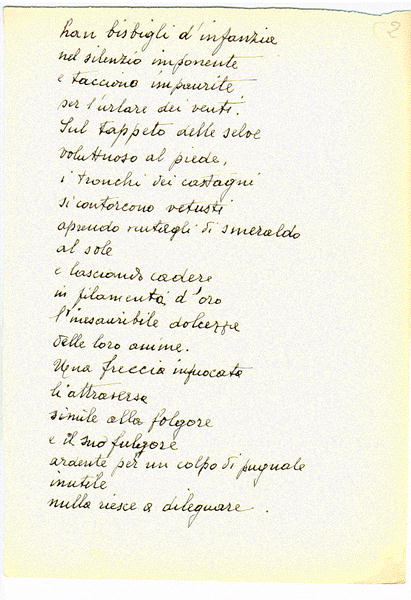 2
han bisbigli d'infanzia
nel silenzio imponente
e tacciono impaurite
per l'urlare dei venti.
Sul tappeto delle selve
voluttuoso al piede,
i tronchi dei castagni
si contorcono vetusti
aprendo ventagli di smeraldo
al sole
e lasciando cadere
in filamenta d'oro
l'inesauribile dolcezza
delle loro anime.
Una freccia infuocata
li attraversa
simile alla folgore
e il suo fulgore
ardente per un colpo di pugnale
inutile
nulla riesce a dileguare.